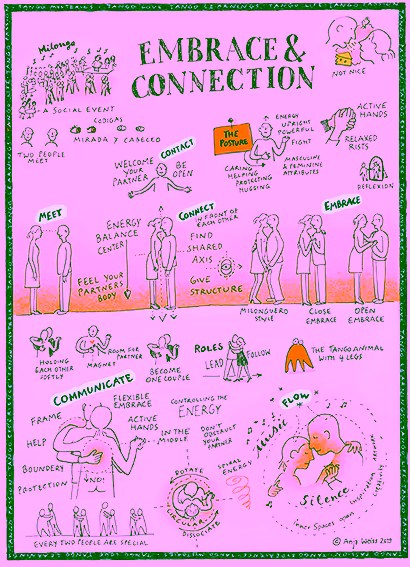 EMBRACE &
CONNECTION
Milonga
A SOCIAL EVENT
CODIGAS
MIRADA Y CABECEO
TWO PEOPLE
MEET
NOT NICE
CONTACT
WELCOME
YOUR
PARTNER
BE
OPEN
THE
POSTURE
ENERGY
UPRIGHT
POWERFUL
FIGHT
CARING
HELPING
PROTECTING
HUGGING
MASCULINE
& FEMININE
ATTRIBUTES
ACTIVE
HANDS
RELAXED
RISTS
REFLEXION
MEET
ENERGY
BALANCE
CENTER
FEEL YOUR
PARTNERS
BODY
CONNECT
IN FRONT OF
EACH OTHER
FIND
SHARED
AXIS
GIVE
STRUCTURE
EMBRACE
MILONGUERO
STYLE
CLOSE
EMBRACE
OPEN
EMBRACE
HOLDING
EACH OTHER
SOFTLY
ROOM FOR
PARTNER
MAGNET
BECOME
ONE COUPLE
ROLES
LEAD
FOLLOW
THE TANGO ANIMAL
WITH 4 LEGS
COMMUNICATE
FRAME
HELP
BOUNDERY
PROTECTION
NO!
FLEXIBLE
EMBRACE
ACTIVE
HANDS
IN THE
MIDDLE
CONTROLLING THE
ENERGY
DON'T
OBSTRUCT
YOUR
PARTNER
ROTATE
CIRCULAR
DISSOCIATE
SPIRAL
ENERGY
FLOW
Music
Silence
Inner Spaces open
EVERY TWO PEOPLE ARE SPECIAL